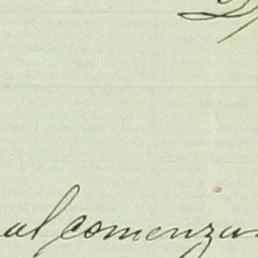 al comenza